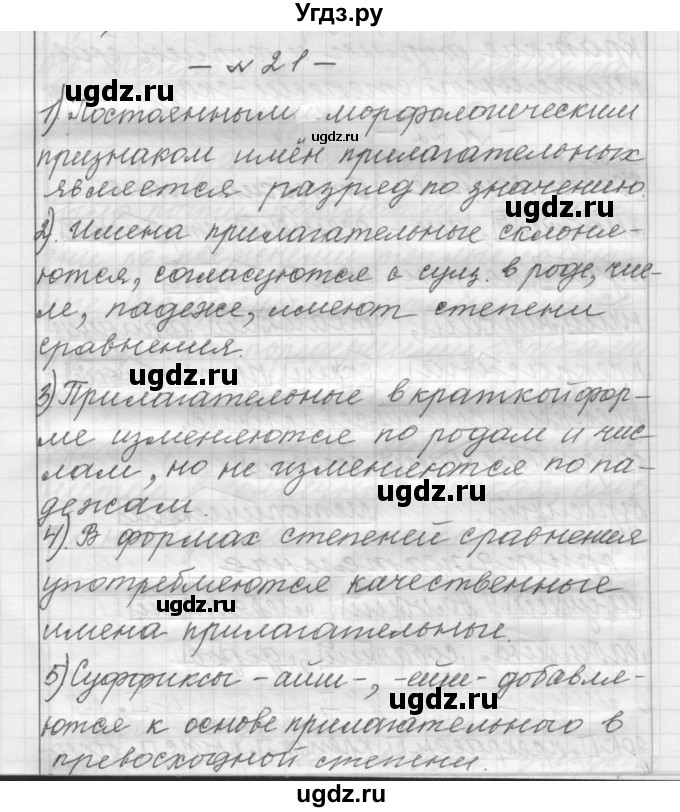 Угдз.ру
- №21 -
ugdz.ru
1) Постоянным морфологическим
ugdz.ru
признаком имён прилагательных
является разряд по значению.
ugdz.ru
2). Имена прилагательные склоня-
ются, согласуются с сущ. в роде, чис-
ле, падеже, имеют степени
сравнения.
ugdz.ru
3) Прилагательные в краткой фор-
ме изменяются по родам и чис-
лам, но не изменяются по па-
ugdz.ru
дежам.
4). В формах степеней сравнения
употребляются качественные
ugdz.ru
имена прилагательные.
5) Суффиксы -айш-, -ейш- добавля-
ugdz.ru
ются к основе прилагательного в
превосходной степени.
ugdz.ru